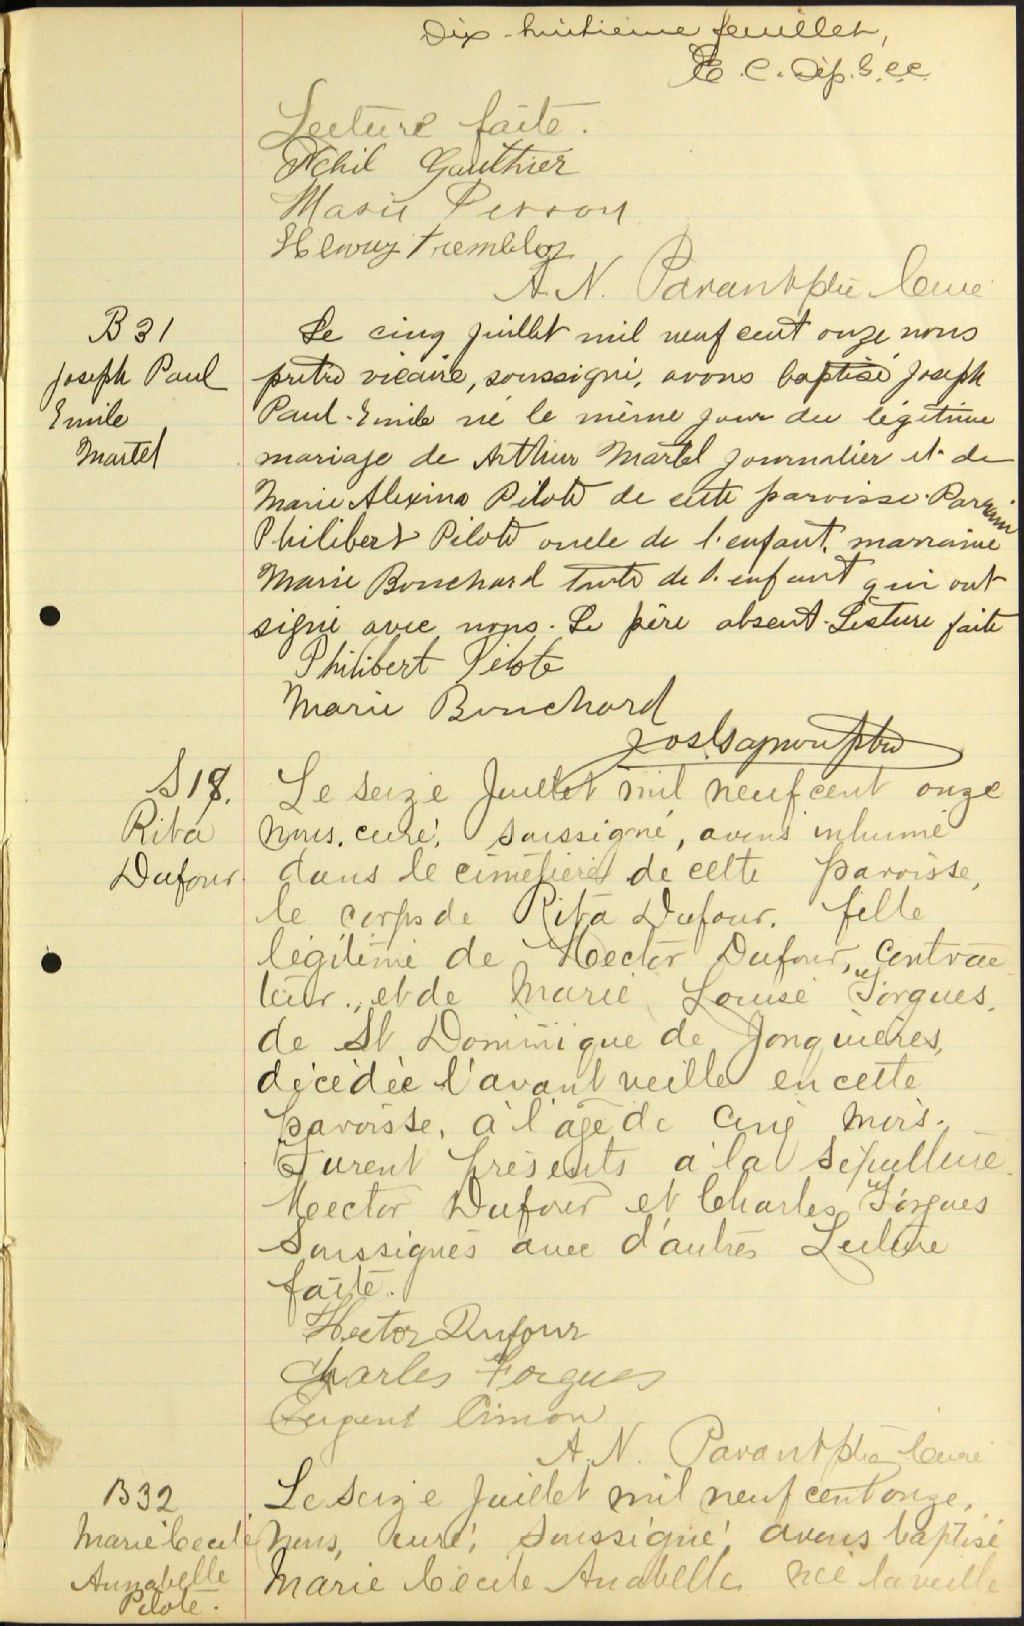 Dix-huitieme feuillet,
E. C. Dép. G. C. C.
Lecture faite.
Achil Gauthier
Marie Perron
Henry Tremblay
A. N. Parant ptre Curé
B 31
Joseph Paul
Emile
Martel
Le cinq juillet mil neuf cent onze nous
prêtre vicaire, soussigné, avons baptisé Joseph
Paul-Emile né le même jour du légitime
mariage de Arthur Martel journalier et de
Marie Alexina Pilote de cette paroisse. Parrain
Philibert Pilote oncle de l'enfant, marraine
Marie Bouchard tante de l'enfant qui ont
signé avec nous. Le père absent. Lecture faite
Philibert Pilote
Marie Bouchard
Jos. ptre
S 18.
Rita
Dufour
Le seize Juillet mil neuf cent onze
nous, curé, soussigné, avons inhumé
dans le cimetière de cette paroisse,
le corps de Rita Dufour, fille
légitime de Hector Dufour, contrac-
teur, et de Marie Louise Forgues,
de St Dominique de Jonquières,
décédée l'avant veille en cette
paroisse, à l'âge de cinq mois.
Furent présents à la sépulture
Hector Dufour et Charles Forgues
soussignés avec d'autres Lecture
faite.
Hector Dufour
Charles Forgues
Eugene Simon
A. N. Parant ptre Curé
B 32
Marie Cecile
Annabelle
Pilote.
Le seize Juillet mil neuf cent onze,
Nous, curé, soussigné, avons baptisé
Marie Cécile Anabelle née la veille